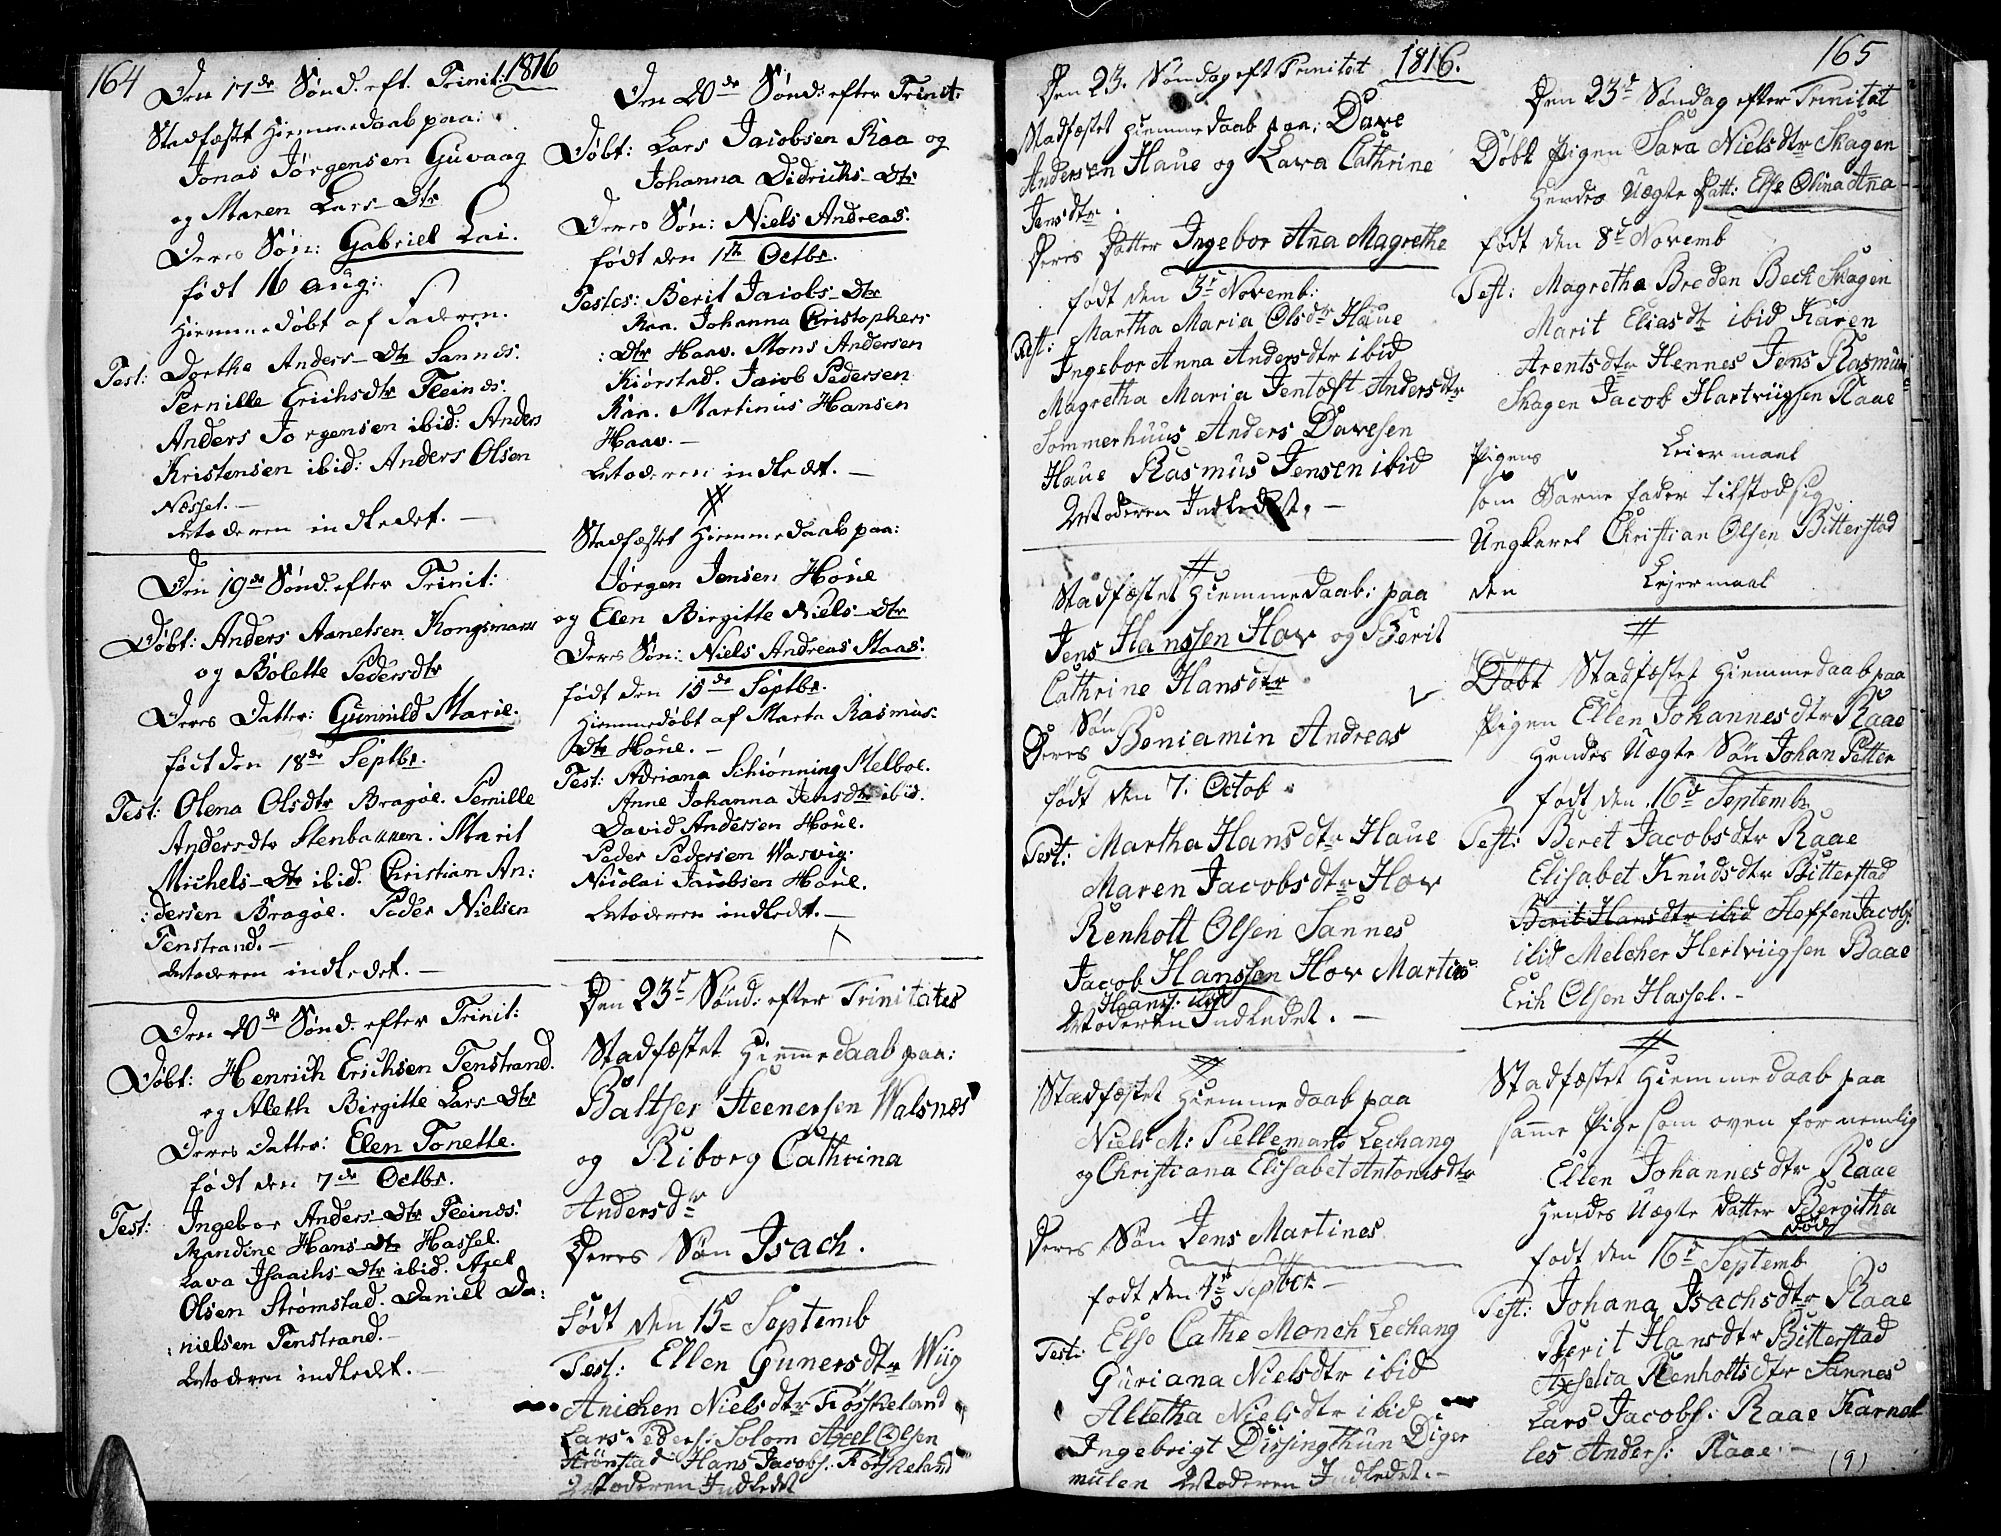 164
1816
Den 17de Sønd. eft. Trinit:
Stadfæstet Hiemmedaab paa:
Jonas Jørgensen Guvaag
og Maren Lars-Dtr
Deres Søn: Gabriel Lai.
født 16 Aug:
Hiemmedøbt af Faderen.
Test: Dorthe Anders-Dtr Sannes.
Pernille Erichsdtr Fleines.
Anders Jørgensen ibid: Anders
Kristensen ibid: Anders Olsen
Nesset.-
Moderen indledet. -
Den 19de Sønd. efter Trinit:
Døbt: Anders Aanetsen Kongsmark
og Bolette Pedersdtr
Deres Datter: Gunnild Marie.
født den 18de Septbr.
Test: Olena Olsdtr Bragøe. Pernille
Andersdtr Stenbakken. Marit
Michels-Dtr ibid. Christian An:
:dersen Bragøe. Peder Nielsen
Fenstrand.-
Moderen indledet. -
Den 20de Sønd. efter Trinit:
Døbt: Henrich Erichsen Fenstrand.
og Aleth Birgitte Lars-Dtr
Deres Datter: Elen Tonette.
født den 7de Octbr.
Test: Ingebor Anders-Dtr Fleines.
Randine Hans-Dtr Hassel.
Lava Isaachs-Dtr ibid. Axel
Olsen Strømstad. Daniel Da:
:nielsen Fenstrand.-
Moderen indledet. -
Den 20de Sønd: efter Trinit:
Døbt: Lars Jacobsen Raa og
Johanna Didrichs-Dtr
Deres Søn: Niels Andreas.
født den 1te Octbr.
Testes: Berit Jacobs-Dtr
Raa. Johanna Christophers
:Dtr Haav. Mons Andersen
Kiørstad. Jacob Pedersen
Raa. Martinus Hansen
Haav. -
Moderen indledet. -
Stadfæstet Hiemmedaab paa:
Jørgen Jensen Houe
og Elen Birgitte Niels-Dtr
Deres Søn: Niels Andreas Staas.
født den 15de Septbr.
Hiemmedøbt af Marta Rasmus-
Dtr Houe. -
Test: Adriana Schiønning Melboe.
Anne Johanna Jensdtr ibid.
David Andersen Houe.
Peder Pedersen Wasvig.
Nicolai Jacobsen Houe.
Moderen indledet. -
Den 23de Sønd: efter Trinitates
Stadfæstet Hiemmedaab paa:
Baltser Steenersen Walsnæs
og Riborg Cathrina
Andersdr
Deres Søn Isach.
Født den 15de Septemb
Test: Ellen Gunersdtr Wiig
Anichen Nielsdtr Frøskeland
Lars Peders: Solom Axel Olsen
Strønstad Hans Jacobs: Frøskeland
Moderen Indledet
165
1816.
Den 23. Søndag eft Trinitat
Stadfæstet Hiemmedaab paa: Dave
Andersen Haue og Lava Cathrine
Jensdtr.
Deres Datter Ingebor Anna Magrethe
født den 3de Novemb:
Test: Martha Maria Olsdtr Haue
Ingebor Anna Andersdtr ibid
Magretha Maria Jentoft Andersdtr
Sommerhuus Anders Davesen
Haue Rasmus Jensen ibid
Moderen Indledet. -
Stadfæstet Hiemmedaab: paa
Jens Hanssen Hov og Berit
Cathrine Hansdtr
Deres Søn Beniamin Andreas
født den 7. Octob
Test: Martha Hansdtr Haue
Maren Jacobsdtr Hov
Renholt Olsen Sannes
Jacob Hanssen Hov Martin
Haans: ibid
Moderen Indledet. -
Stadfæstet Hiemmedaab paa
Niels M: Piellemark Lechang
og Christiana Elisabet Antonisdtr
Deres Søn Jens Martines
født den 4de Septbr -
Test: Else Cathe Monch Lechang
Guriana Nielsdtr ibid
Alletha Nielsdtr ibid
Ingebrigt Dissingthun Diger
mulen Moderen Indledet. -
Den 23de Søndag efter Trinitat
Døbt Pigen Sara Nielsdtr Skagen
Hendes Uægte Datt: Else Olina Anna
født den 8de Novemb
Test: Magretha Breden Beck Skagen
Marit Eliasdtr ibid Karen
Arentsdtr Hennes Jens Rasmus:
Skagen Jacob Hartviigsen Raae
Pigens Leiermaal
som Barne fader tilstod sig
Ungkarl Christian Olsen Bitterstad
den Lejermaal
Døbt Stadfæstet Hiemmedaab paa
Pigen Ellen Johannesdtr Raae
Hendes Uægte Søn Johan Petter
født den 16de Septembr
Test: Beret Jacobsdtr Raae
Elisabet Knudsdtr Bitterstad
Berit Hansdtr ibid Steffen Jacobs:
ibid Melcher Hertviigsen Raae
Erik Olsen Hassel. -
Stadfæstet Hiemmedaab paa
samme Pige som oven for nemlig
Ellen Johannesdtr Raae
Hendes Uægte Datter Bergitha
død
født den 16de Septemb
Test: Johana Isachsdtr Raae
Berit Hansdtr Bitterstad
Axselia Renholtsdtr Sannes
Lars Jacobs: Raae Karnel
les Anders: Raae. -
(9)